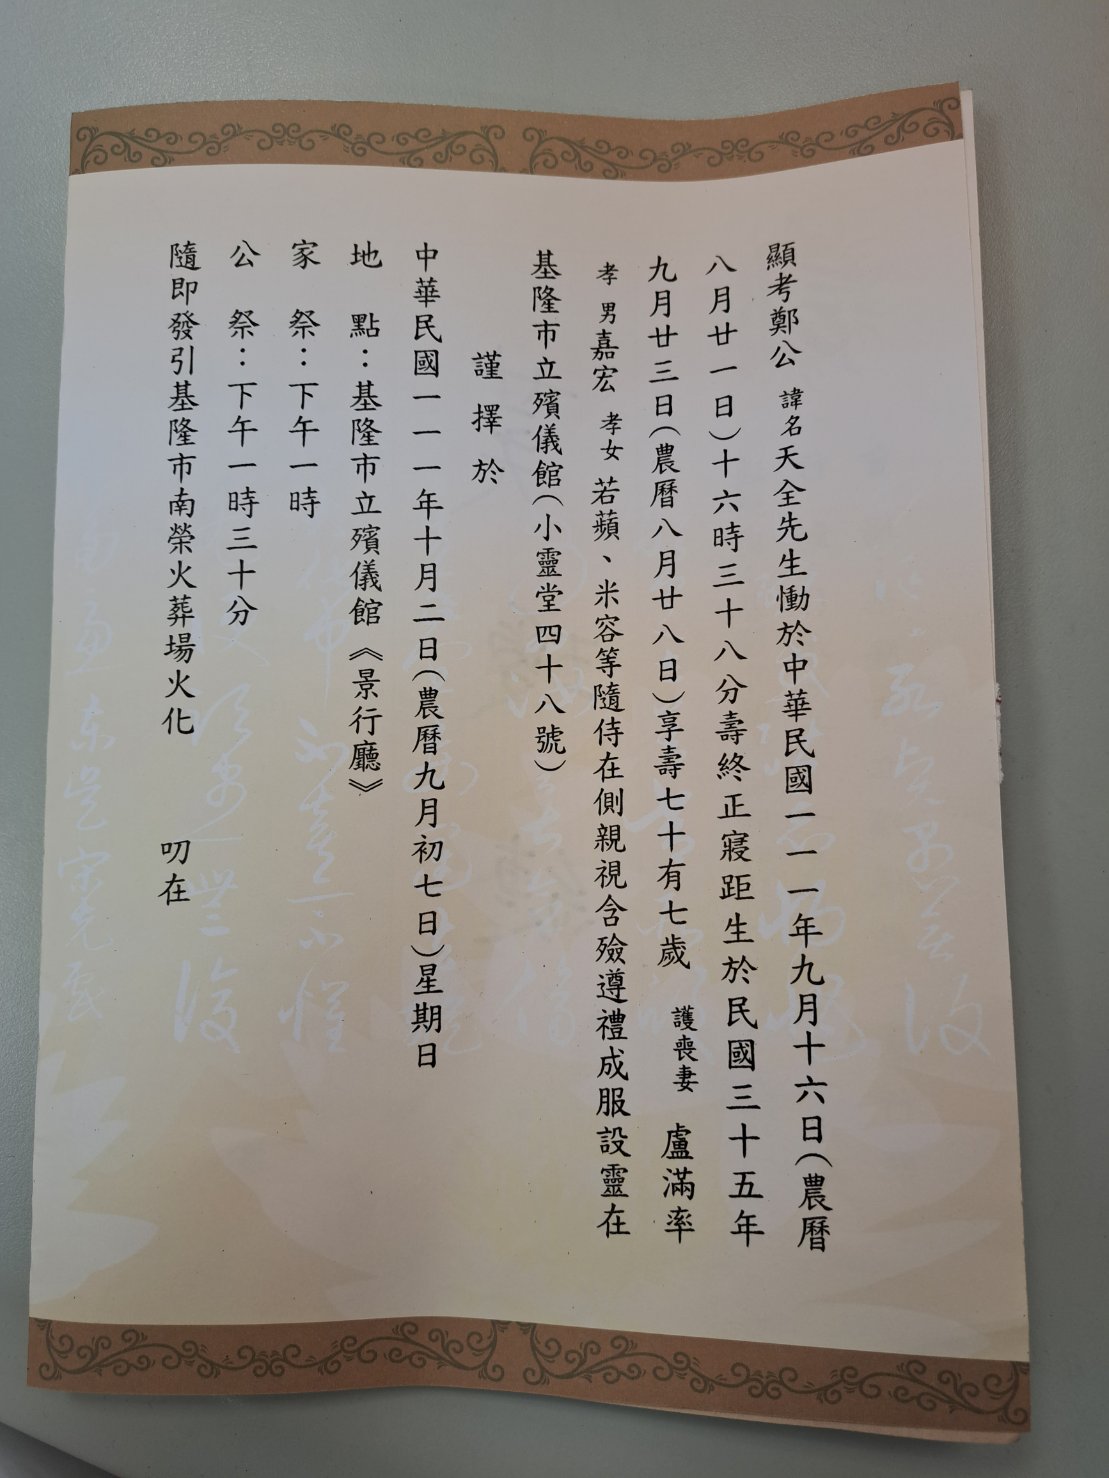 顯考鄭公諱名天全先生慟於中華民國一一一年九月十六日(農曆
八月廿一日)十六時三十八分壽終正寢距生於民國三十五年
九月廿三日(農曆八月廿八日)享壽七十有七歲 護喪妻 盧滿率
孝男嘉宏 孝女若蘋、米容等隨侍在側親視含殮遵禮成服設靈在
基隆市立殯儀館(小靈堂四十八號)
謹擇於
中華民國一一一年十月二日(農曆九月初七日)星期日
地 點：基隆市立殯儀館《景行廳》
家 祭：下午一時
公 祭：下午一時三十分
隨即發引基隆市南榮火葬場火化 叨在